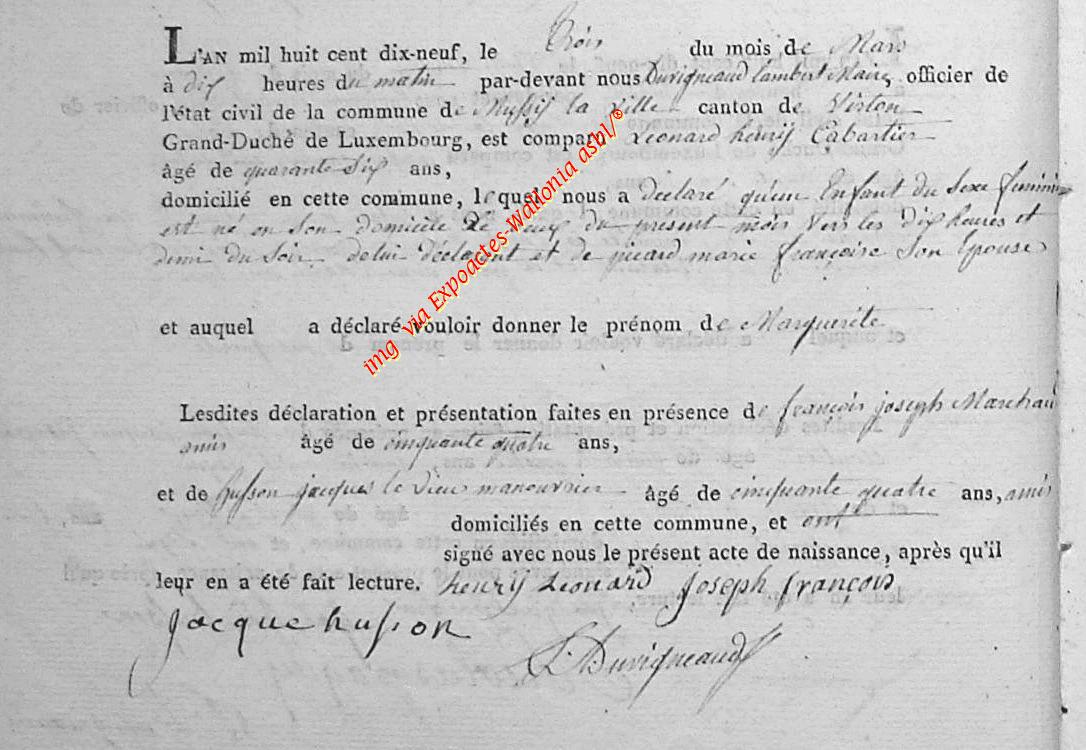 L'AN mil huit cent dix-neuf, le trois du mois de Mars
à dix heures du matin par-devant nous Duvigneaud Lambert Maire officier de
l'état civil de la commune de Mussij la ville canton de Virton
Grand-Duchè de Luxembourg, est comparu Leonard henrij Cabartier
âgé de quarante Six ans,
domicilié en cette commune, lequel nous a declaré qu'un Enfant du Sexe feminin
est né en Son domicile le deux du present mois vers les dix heures et
demi du Soir de lui déclarant et de picard marie françoise Son Epouse
et auquel a déclaré vouloir donner le prénom de Marguerite
Lesdites déclaration et présentation faites en présence de françois joseph
amis âgé de cinquante quatre ans,
et de husson jacques le vieux manouvrier âgé de cinquante quatre ans, amis
domiciliés en cette commune, et ont
signé avec nous le présent acte de naissance, après qu'il
leur en a été fait lecture. henrij Leonard Joseph françois
Jacque husson
L. Duvigneaud
img via Expoactes-Wallonia asbl/©